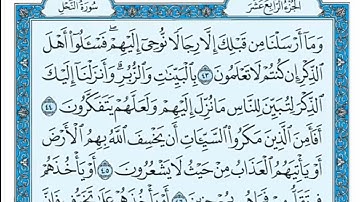 الجزء الرابع عشر
سورة النحل
وَمَآ أَرْسَلْنَا مِن قَبْلِكَ إِلَّا رِجَالًا نُّوحِىٓ إِلَيْهِمْ ۖ فَسْـَٔلُوٓا۟ أَهْلَ
ٱلذِّكْرِ إِن كُنتُمْ لَا تَعْلَمُونَ ٤٣ بِٱلْبَيِّنَـٰتِ وَٱلزُّبُرِ ۗ وَأَنزَلْنَآ إِلَيْكَ
ٱلذِّكْرَ لِتُبَيِّنَ لِلنَّاسِ مَا نُزِّلَ إِلَيْهِمْ وَلَعَلَّهُمْ يَتَفَكَّرُونَ ٤٤
أَفَأَمِنَ ٱلَّذِينَ مَكَرُوا۟ ٱلسَّيِّـَٔاتِ أَن يَخْسِفَ ٱللَّهُ بِهِمُ ٱلْأَرْضَ
أَوْ يَأْتِيَهُمُ ٱلْعَذَابُ مِنْ حَيْثُ لَا يَشْعُرُونَ ٤٥ أَوْ يَأْخُذَهُمْ
فِى تَقَلُّبِهِمْ فَمَا هُم بِمُعْجِزِينَ ٤٦ أَوْ يَأْخُذَهُمْ عَلَىٰ تَخَوُّفٍ فَإِنَّ